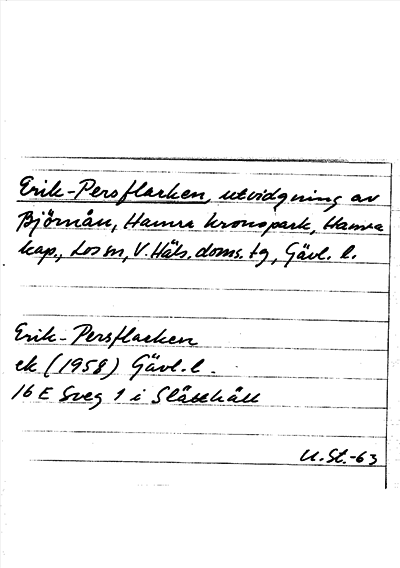 Erik-Persflacken, utvidgning av
Björnån, Hamra kronopark, Hamra
kap., Los sn, V. Häls. doms. tg, Gävl. l.
Erik-Persflacken
ek (1958) Gävl. l.
16 E Sveg 1 i
U. St. -63